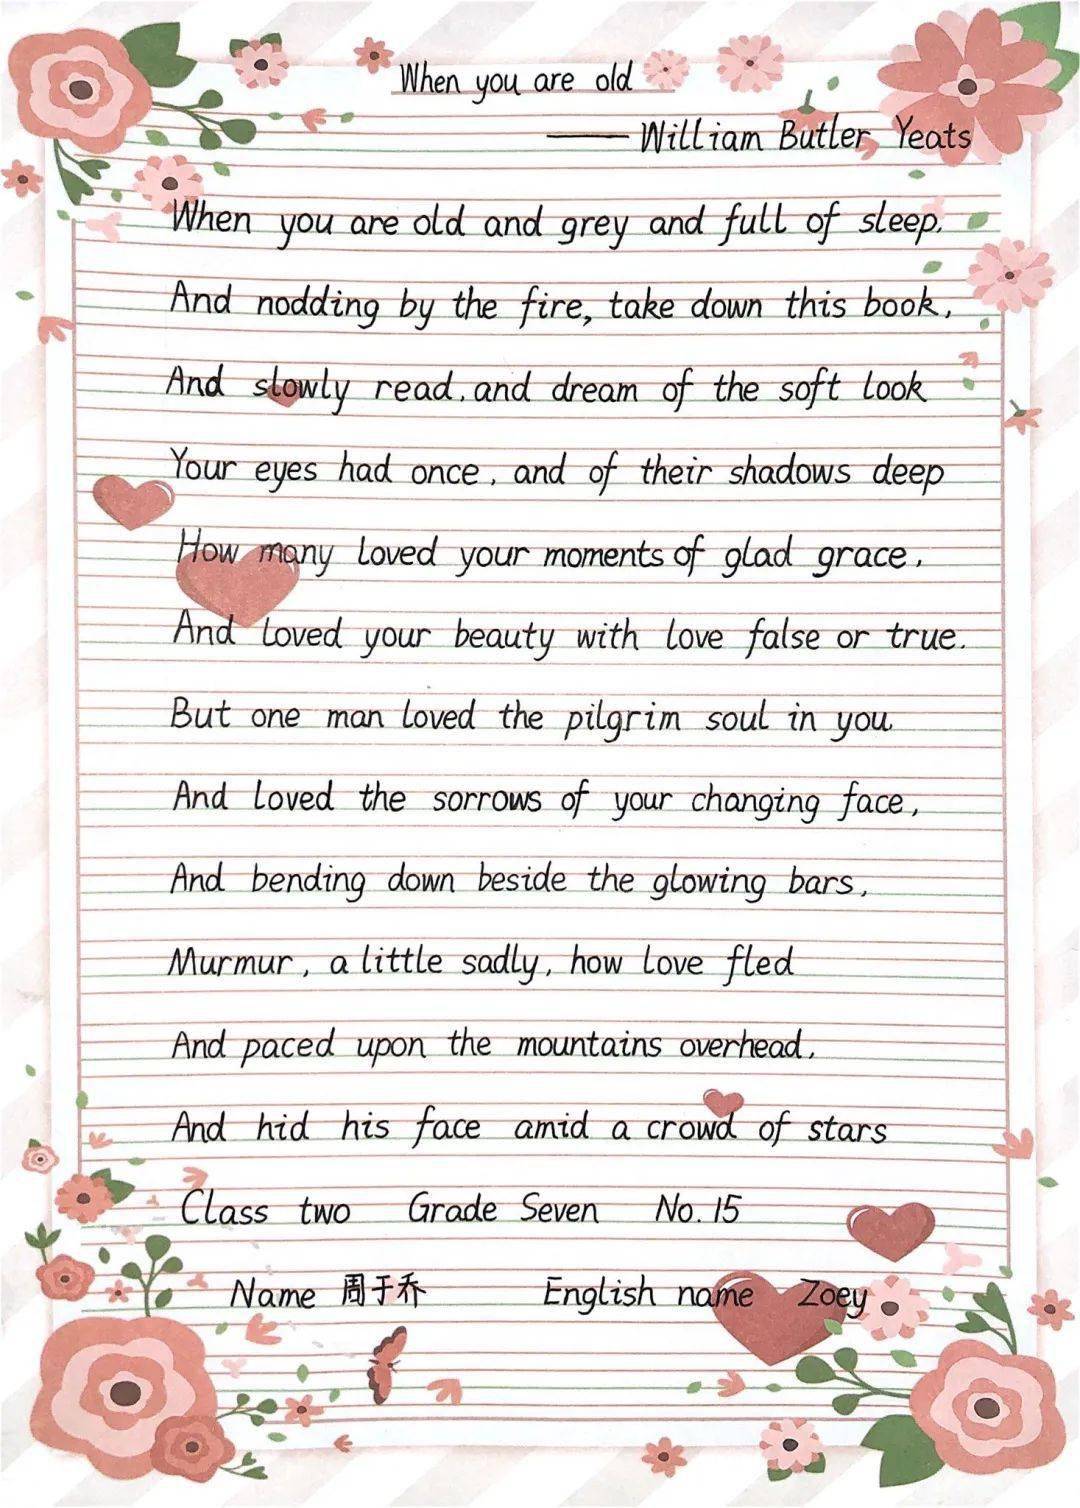 When you are old
——William Butler Yeats
When you are old and grey and full of sleep.
And nodding by the fire, take down this book,
And slowly read, and dream of the soft look
Your eyes had once, and of their shadows deep
How many loved your moments of glad grace,
And loved your beauty with love false or true.
But one man loved the pilgrim soul in you
And loved the sorrows of your changing face,
And bending down beside the glowing bars,
Murmur, a little sadly, how love fled
And paced upon the mountains overhead,
And hid his face amid a crowd of stars
Class two Grade Seven No.15
Name 周于乔 English name Zoey